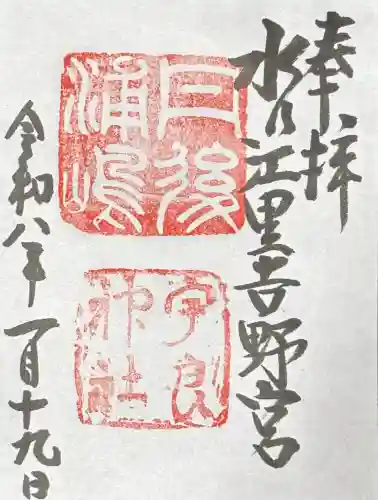 奉拝
水乃江里吉野宮
丹後
浦嶋
宇良
神社
令和八年一月十九日